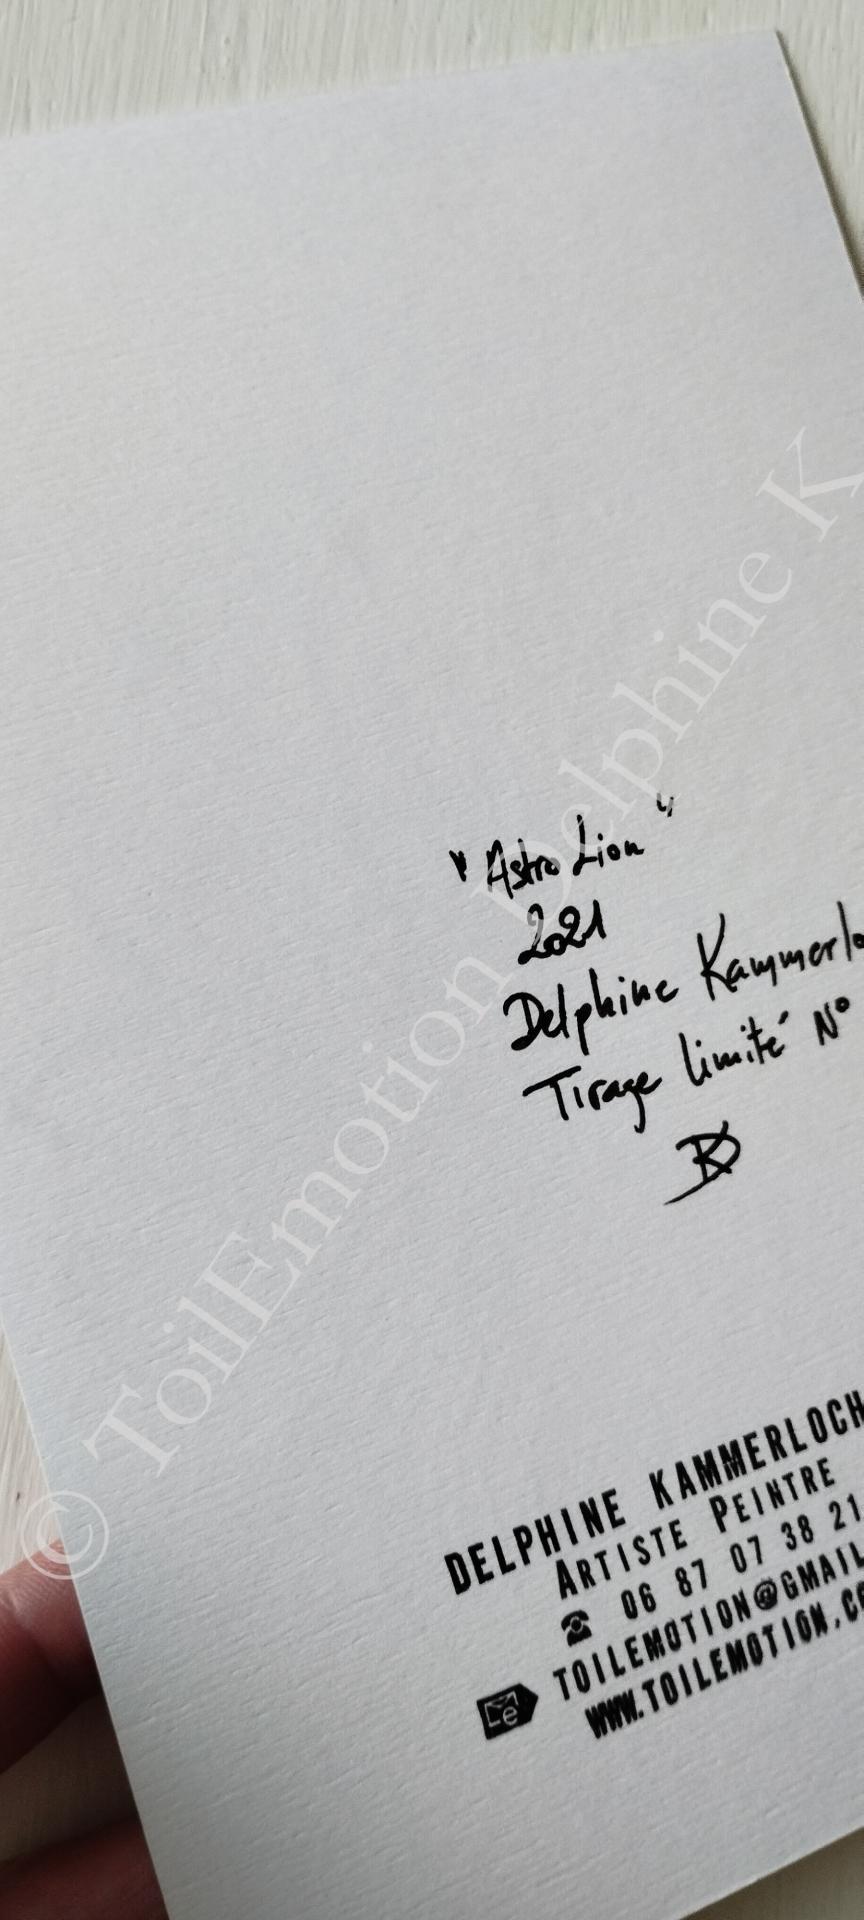 " Astro Lion "
2021
Delphine Kammerlo
Tirage limité N°
DK
DELPHINE KAMMERLOCH
ARTISTE PEINTRE
06 87 07 38 21
TOILEMOTION@GMAIL
WWW.TOILEMOTION.CO
© ToilEmotion Delphine K